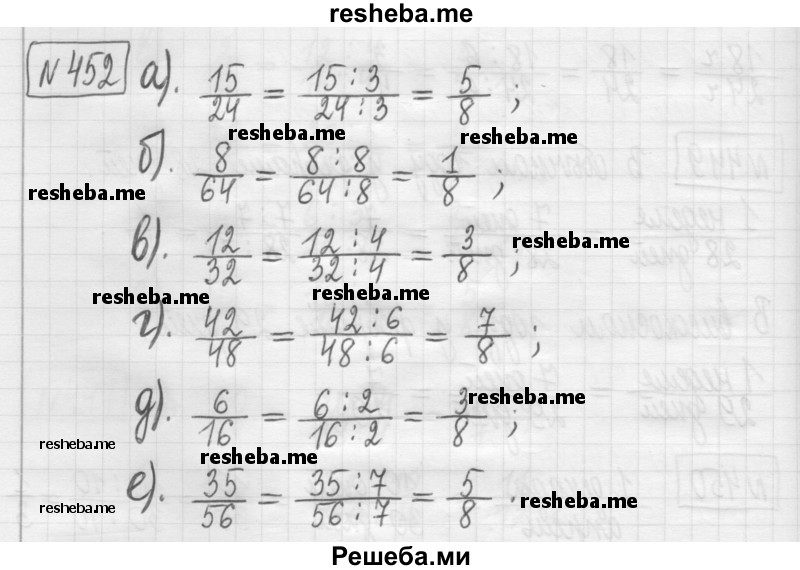 resheba.me
№ 452 а). 15/24 = 15 : 3/24 : 3 = 5/8 ;
resheba.me resheba.me
б). 8/64 = 8 : 8/64 : 8 = 1/8 ;
resheba.me
в). 12/32 = 12 : 4/32 : 4 = 3/8 ;
resheba.me
resheba.me resheba.me
г). 42/48 = 42 : 6/48 : 6 = 7/8 ;
д). 6/16 = 6 : 2/16 : 2 = 3/8 ;
resheba.me
resheba.me resheba.me
е). 35/56 = 35 : 7/56 : 7 = 5/8 .
resheba.me resheba.me
Решеба.ми